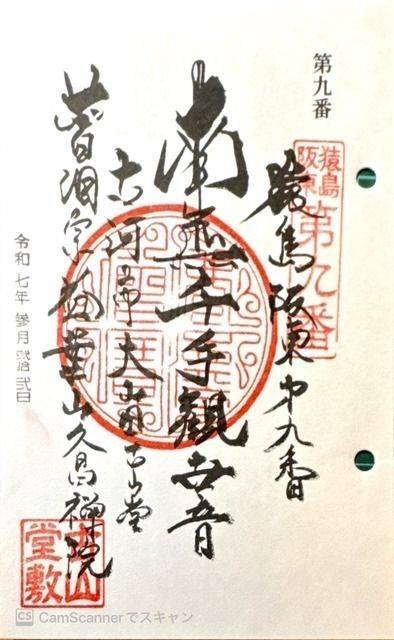 第九番
猿島
阪東
第九番
猿島阪東第九番
南無千手觀世音
古河市大山
曹洞宗稲葉山久昌禅院
令和七年 参月 弐拾弐日
CS CamScannerでスキャン